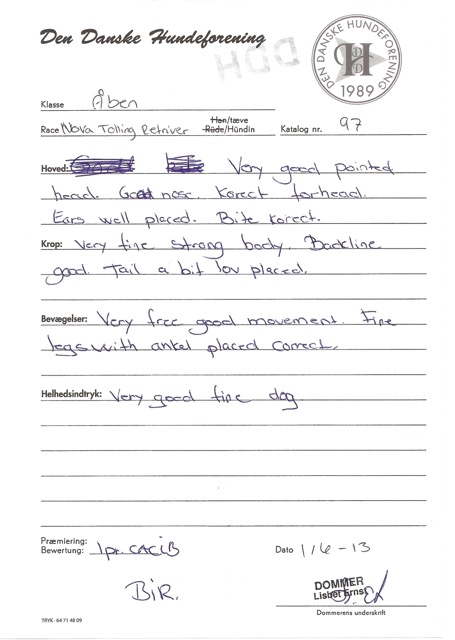 Den Danske Hundeforening
DDH
DEN DANSKE HUNDEFORENING
DDH
1989
Klasse Åben
Race Nova Tolling Retriver Han/tæve Rüde/Hündin Katalog nr. 97
Hoved: Very good pointed
head. Good nose. Korect forhead.
Ears well placed. Bite korect.
Krop: Very fine strong body. Backline
good. Tail a bit lov placed.
Bevægelser: Very free good movement. Fine
legs with ankel placed correct.
Helhedsindtryk: Very good fine dog
Præmiering:
Bewertung: 1pr. CACIB
Dato 1/6-13
BIR.
DOMMER
Lisbet Ernst
Dommerens underskrift
TRYK - 64 71 48 09